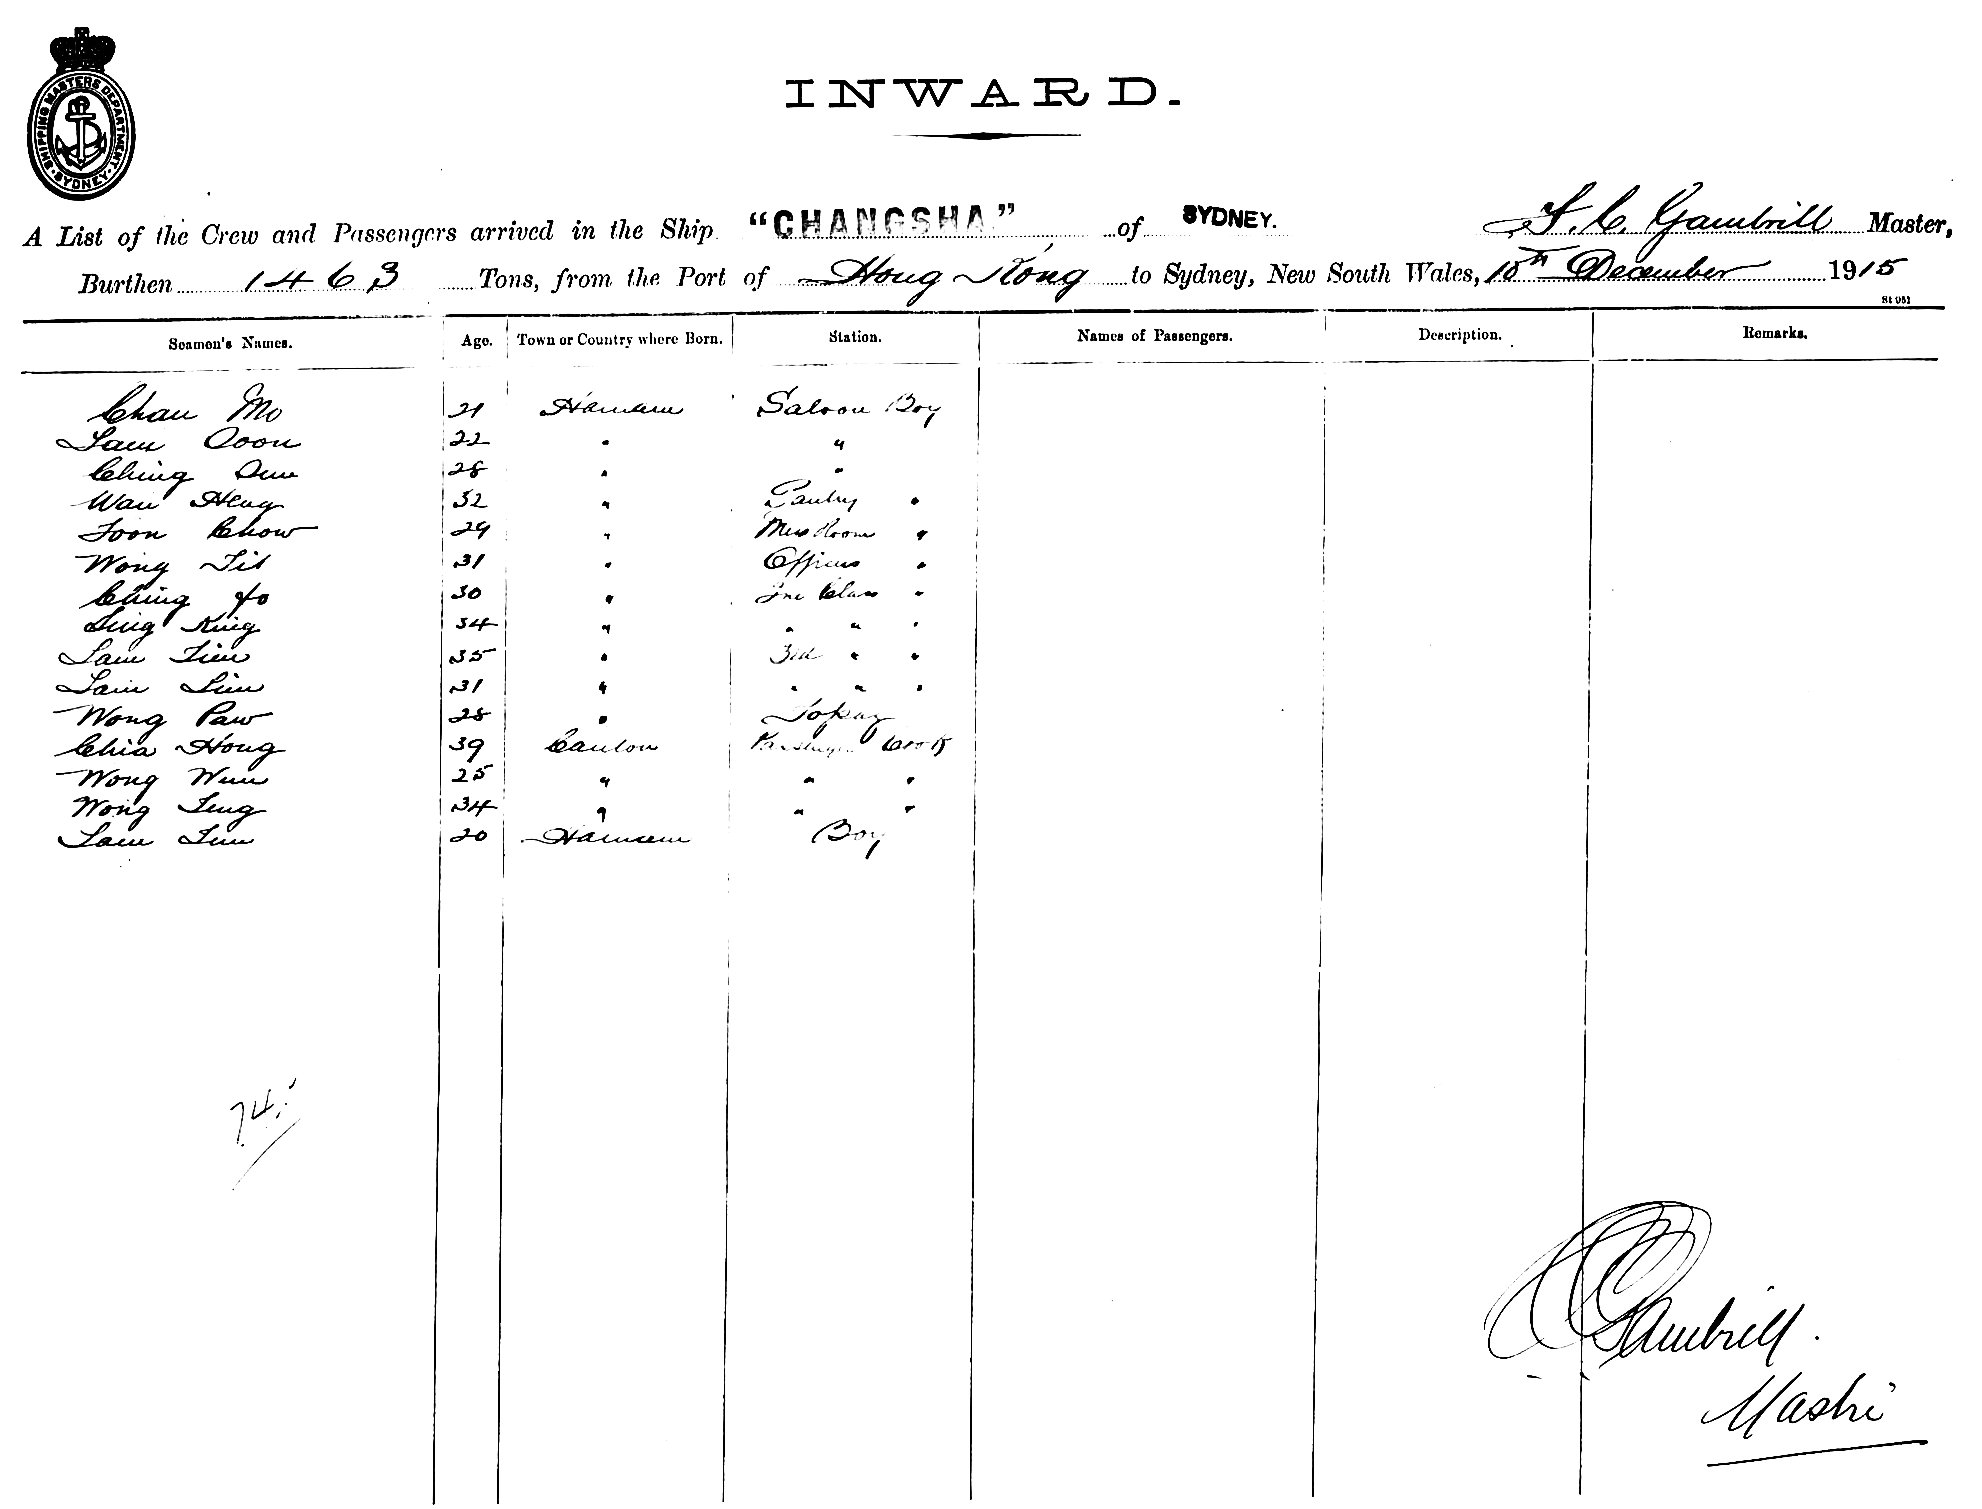 SHIPPING MASTERS DEPARTMENT
SYDNEY
INWARD.
A List of the Crew and Passengers arrived in the Ship "CHANGSHA" of SYDNEY. Gambrill Master,
Burthen 1463 Tons, from the Port of Hong Kong to Sydney, New South Wales, 10th December 1915
Seamen's Names. Age. Town or Country where Born. Station. Names of Passengers. Description. Remarks.
Chan Mo 21 Saloon Boy
Lam Coon 22 " "
Ching 28 " "
Wan Heng 32 " Pantry "
Toon Chow 29 " Mess Room "
Wong Tit 31 " Officers "
Ching Yo 30 " Class "
Ling King 34 " " " "
Lam Tim 35 " 3rd " "
Lam Lim 31 " " " "
Wong Paw 28 " Topaz
Chia Hong 39 Canton Passenger Cook
Wong 25 " " "
Wong 34 " " "
Lam 20 Boy
74
Gambrill.
Master